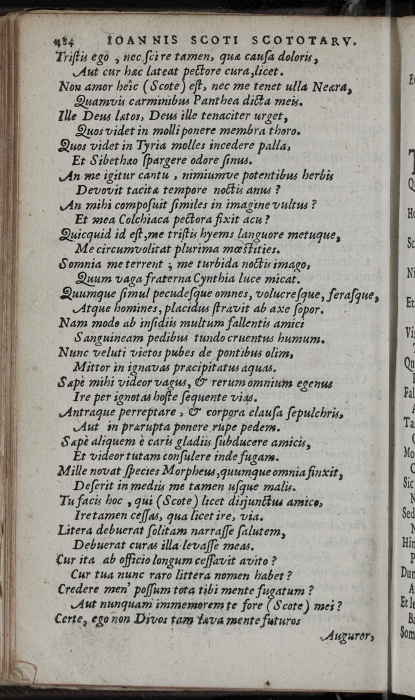 484 IOANNIS SCOTI SCOTOTARV.
Tristis ego, nec scire tamen, quæ causa doloris,
Aut cur hæc lateat pectore cura, licet.
Non amor heîc (Scote) est, nec me tenet ulla Neæra,
Quamvis carminibus Panthea dicta meis.
Ille Deus latos, Deus ille tenaciter urget,
Quos videt in molli ponere membra thoro.
Quos videt in Tyria molles incedere palla,
Et Sibethæo spargere odore sinus.
An me igitur cantu, nimiumve potentibus herbis
Devovit tacitæ tempore noctis anus?
An mihi composuit similes in imagine vultus?
Et mea Colchiaca pectora fixit acu?
Quicquid id est, me tristis hyems languore metuque,
Me circumvolitat plurima mœstities.
Somnia me terrent; me turbida noctis imago,
Quum vaga fraterna Cynthia luce micat.
Quumque simul pecudesque omnes, volucresque, ferasque,
Atque homines, placidus stravit ab axe sopor.
Nam modo ab insidiis multum fallentis amici
Sanguineam pedibus tundo cruentus humum.
Nunc veluti vietos pubes de pontibus olim,
Mittor in ignavas præcipitatus aquas.
Sæpè mihi videor vagus, & rerum omnium egenus
Ire per ignotas hoste sequente vias.
Antraque perreptare, & corpora clausa sepulchris,
Aut in prærupta ponere rupe pedem.
Sæpè aliquem è caris gladiis subducere amicis,
Et videor tutam consulere inde fugam.
Mille novat species Morpheus, quumque omnia finxit,
Deserit in mediis me tamen usque malis.
Tu facis hoc, qui (Scote) licet disjunctus amico,
Ire tamen cessas, qua licet ire, via.
Litera debuerat solitam narrasse salutem,
Debuerat curas illa levasse meas.
Cur ita ab officio longum cessavit avito?
Cur tua nunc raro littera nomen habet?
Credere men' possum tota tibi mente fugatum?
Aut nunquam immemorem te fore (Scote) mei?
Certe, ego non Divos tam sæva mente futuros
Auguror,